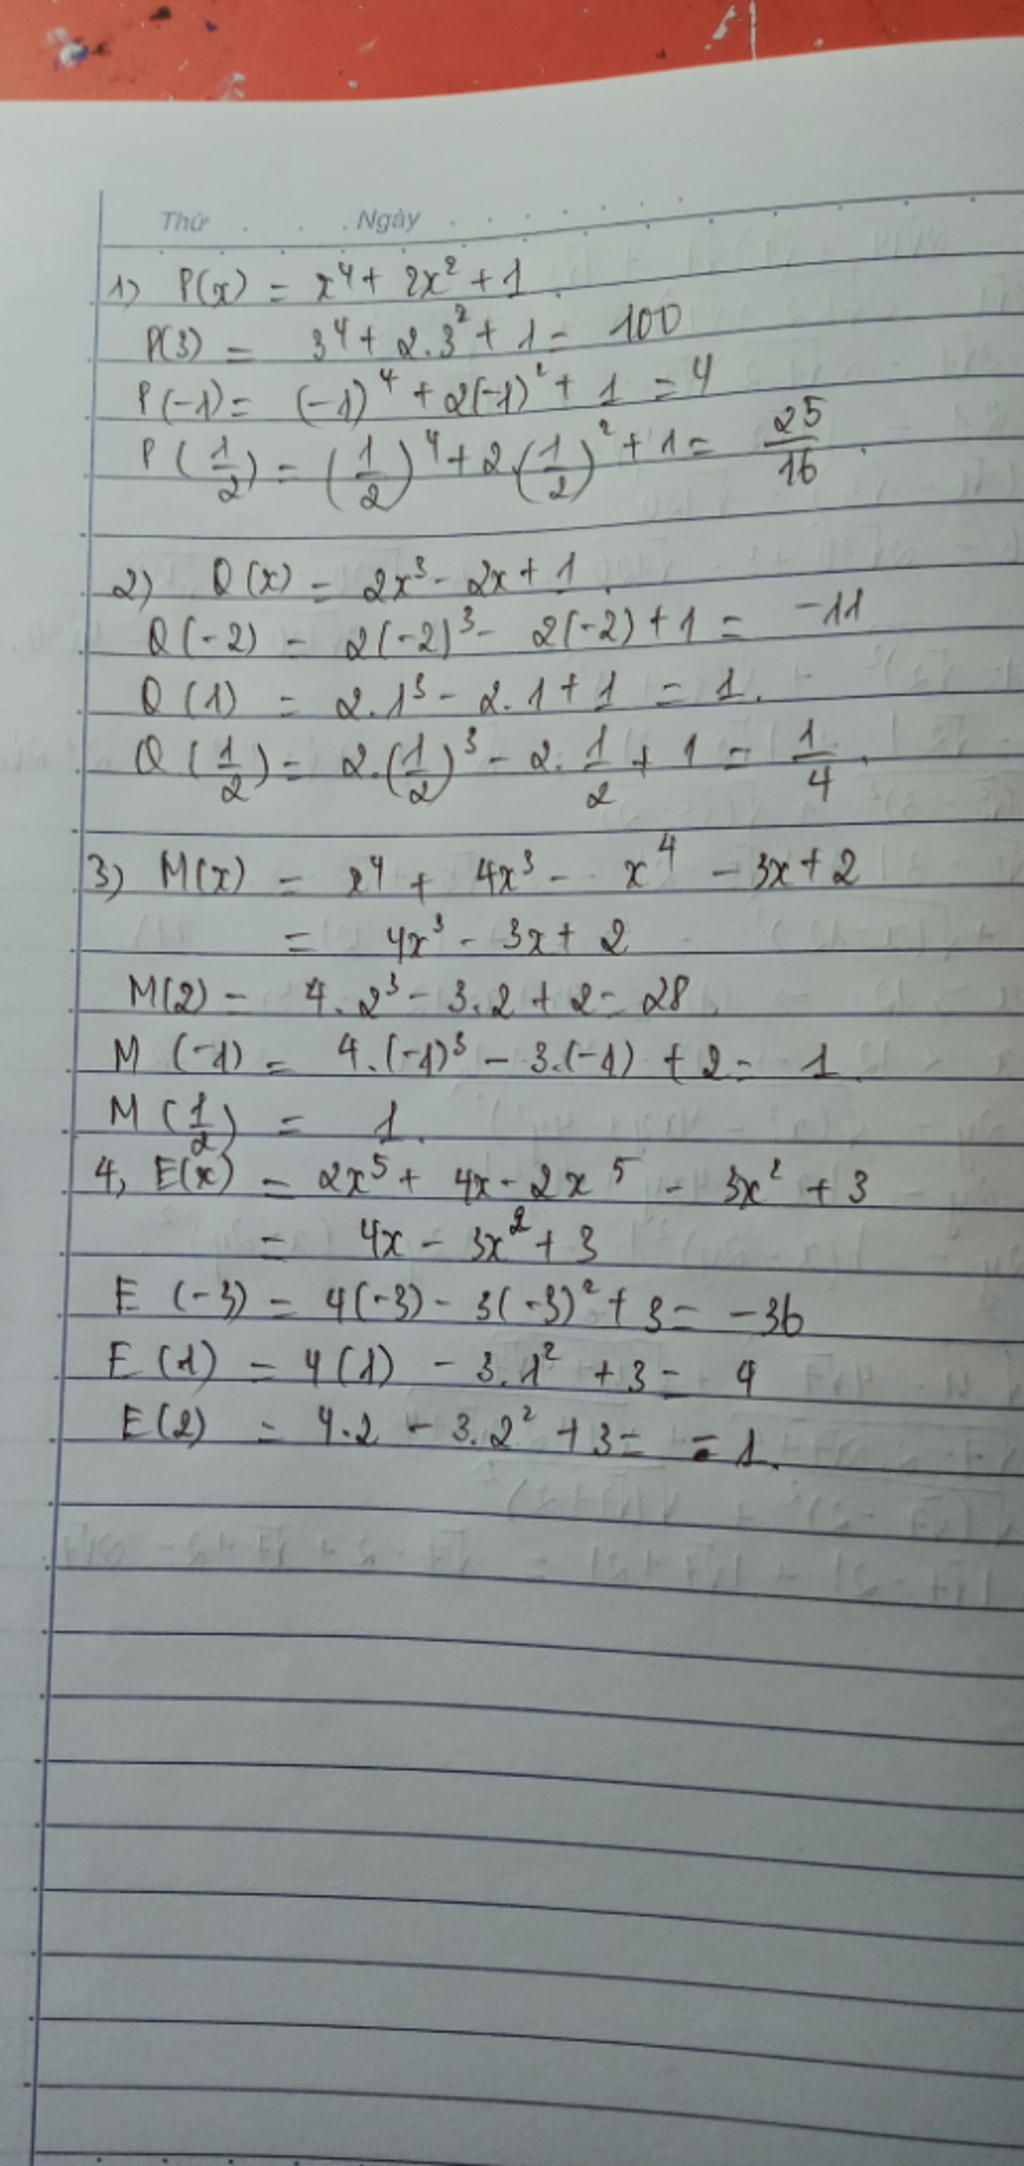 Thứ . . . Ngày
1) P(x) = x⁴ + 2x² + 1.
P(3) = 3⁴ + 2.3² + 1 = 100
P(-1) = (-1)⁴ + 2(-1)² + 1 = 4
P(1/2) = (1/2)⁴ + 2.(1/2)² + 1 = 25/16.
2) Q(x) = 2x³ - 2x + 1.
Q(-2) = 2(-2)³ - 2(-2) + 1 = -11
Q(1) = 2.1³ - 2.1 + 1 = 1.
Q(1/2) = 2.(1/2)³ - 2.1/2 + 1 = 1/4.
3) M(x) = x⁴ + 4x³ - x⁴ - 3x + 2
= 4x³ - 3x + 2
M(2) = 4.2³ - 3.2 + 2 = 28.
M(-1) = 4.(-1)³ - 3.(-1) + 2 = 1.
M(1/2) = 1.
4, E(x) = 2x⁵ + 4x - 2x⁵ - 3x² + 3
= 4x - 3x² + 3
E(-3) = 4(-3) - 3(-3)² + 3 = -36
E(1) = 4(1) - 3.1² + 3 = 4
E(2) = 4.2 - 3.2² + 3 = = 1.